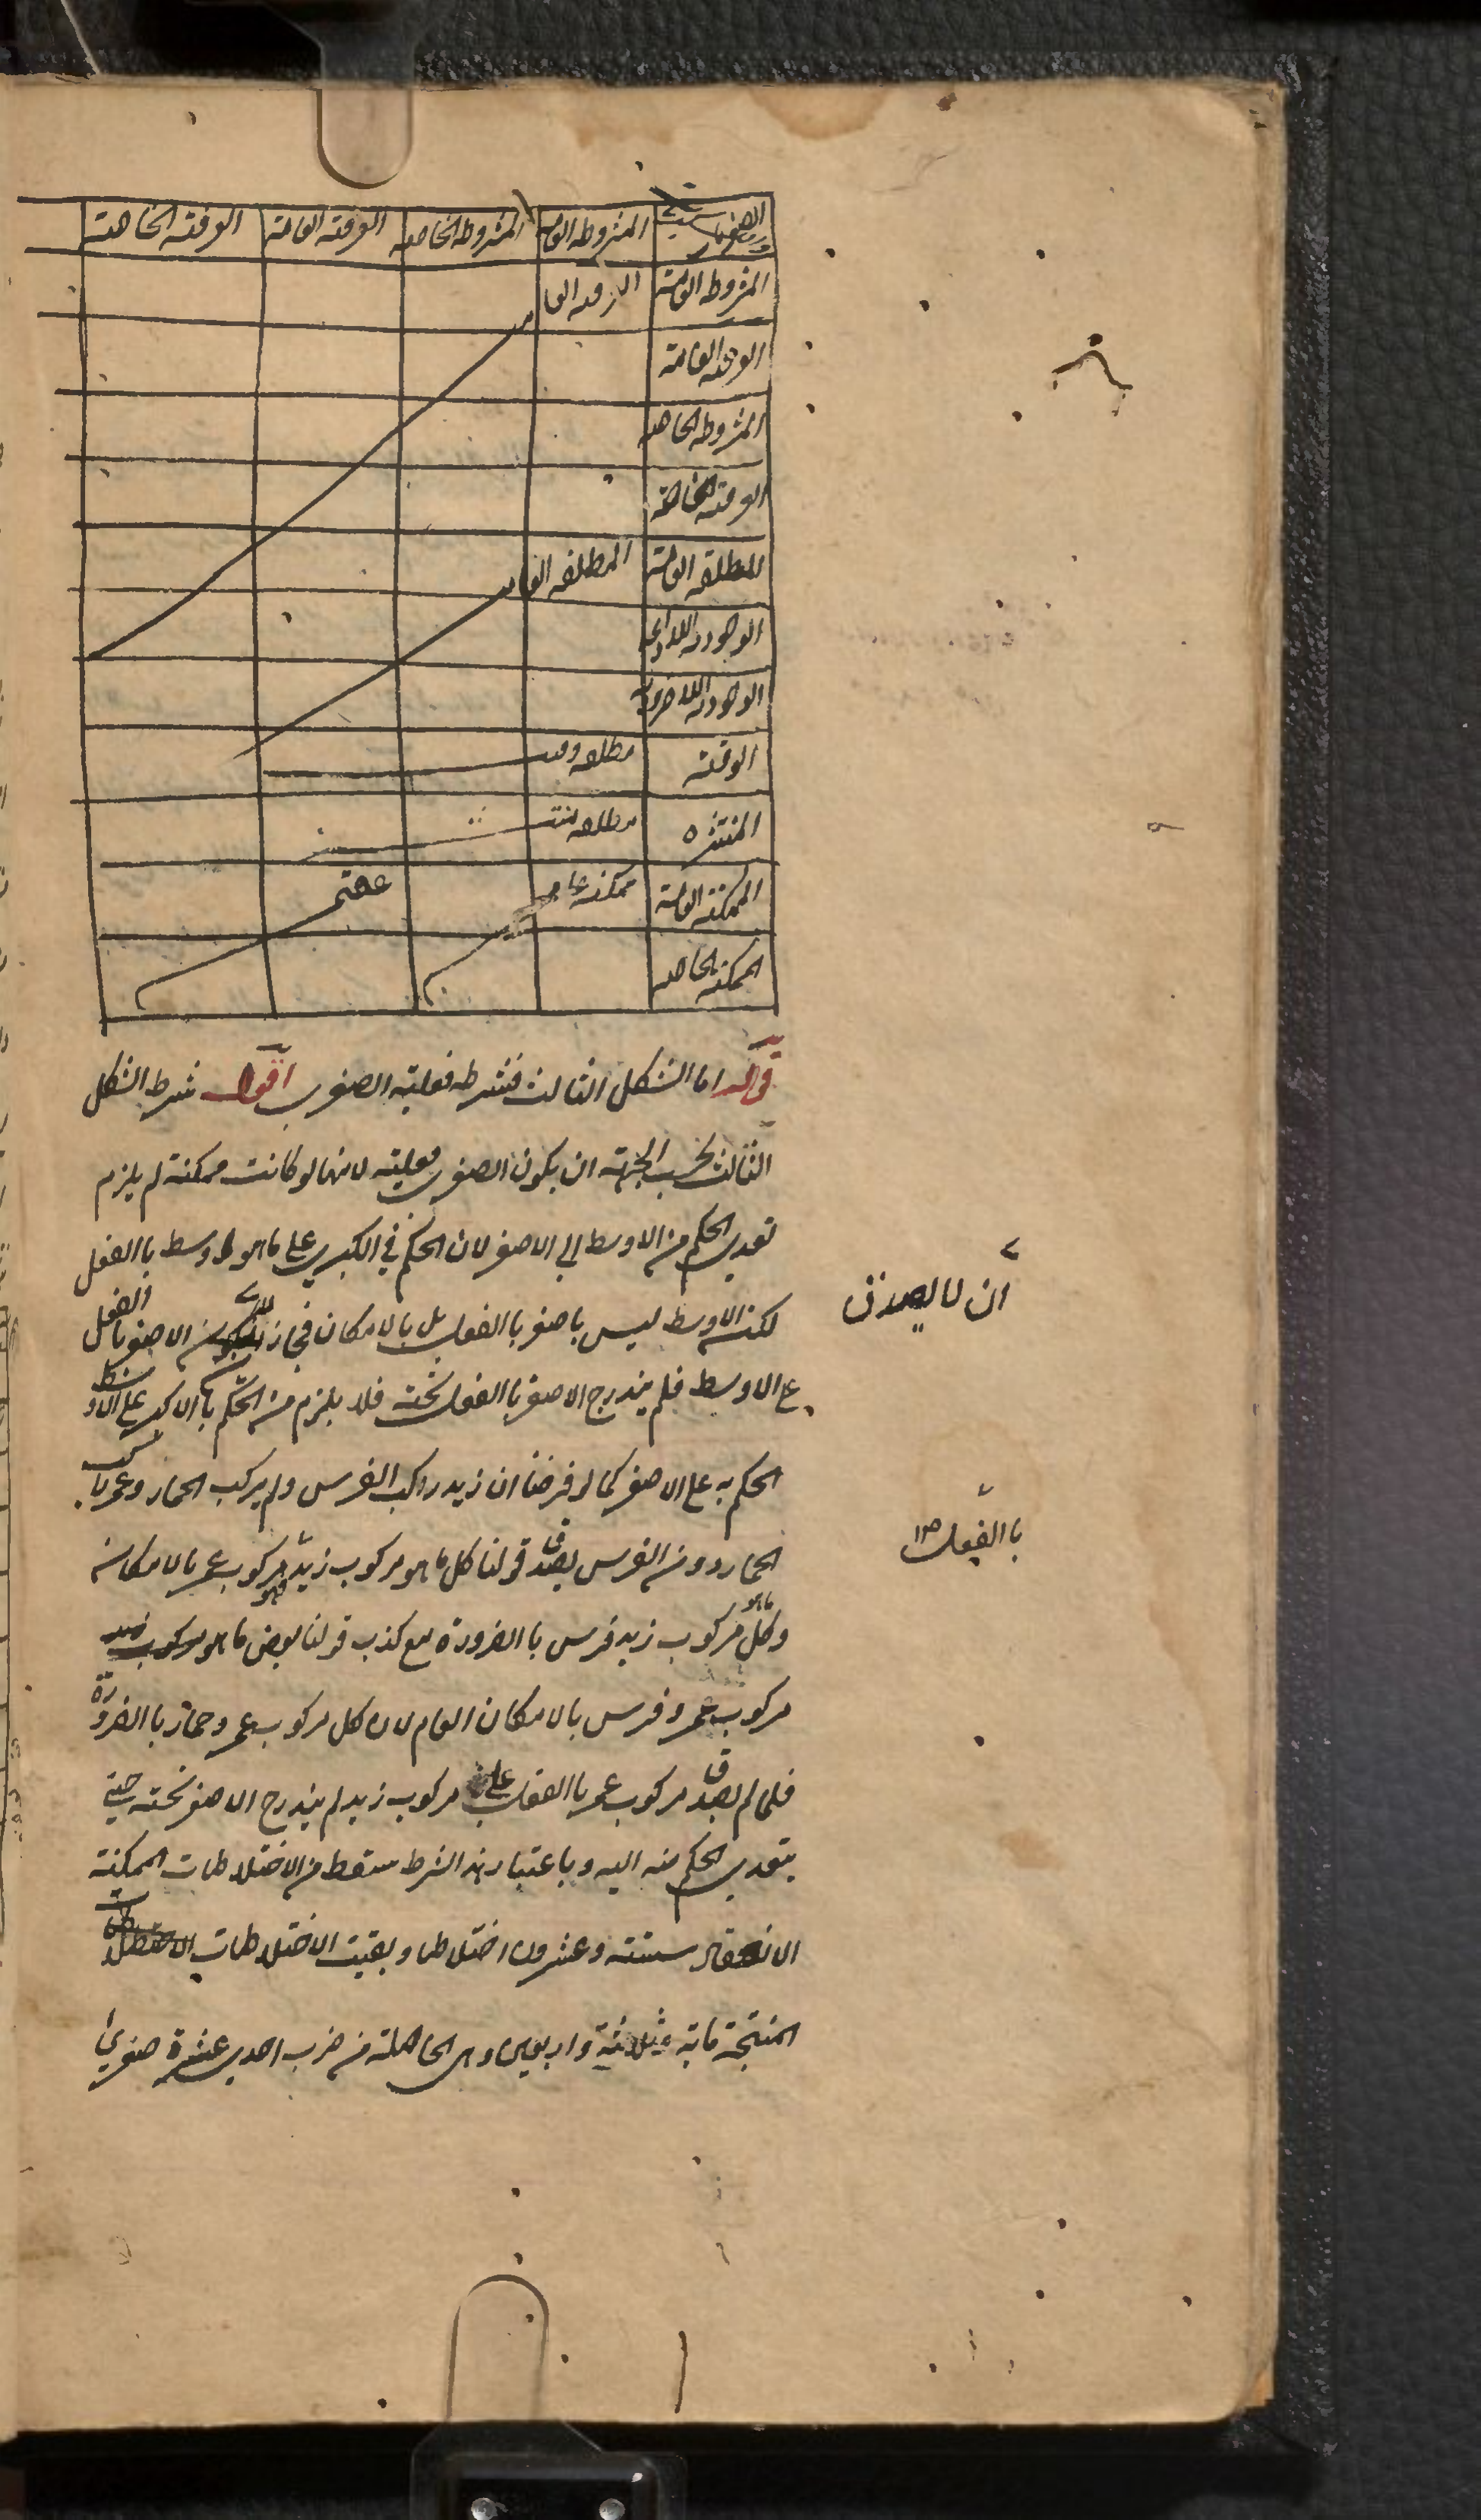 المشروطه العامه المشروطه الخاصه العرفيه العامة العرفيه الخاصة
المشروطه العامة
العرفيه العامة
المشروطه الخاصه
العرفيه الخاصة
المطلقه العامة المطلقه العامه
الوجوديه اللادائمه
الوجوديه اللاضروريه
الوقتيه مطلقه وقتيه
المنتشره مطلقه منتشره
الممكنة العامة ممكنه عامه عقيم
الممكنه الخاصه
قال اما الشكل الثالث فشرطه فعلية الصغرى اقول شرط الشكل
الثالث بحسب الجهة ان يكون الصغرى فعلية لانها لو كانت ممكنة لم يلزم
تعدى الحكم من الاوسط الي الاصغر لان الحكم في الكبرى على ما هو اوسط باالفعل
لكن الاوسط ليس باصغر باالفعل بل بالامكان فجاز الاصغر باالفعل
ان لا يصدق
ع الاوسط فلم يندرج الاصغر باالفعل تحته فلا يلزم من الحكم باالاكبر على الاوسط
الحكم به على الاصغر كما لو فرضنا ان زيد راكب الفرس ولم يركب الحمار وعمر راكب
الحمار دون الفرس يصدق قولنا كل ما هو مركوب زيد مركوب عمر بالامكان
باالفعل
وكل ما هو مركوب زيد فرس باالضرورة مع كذب قولنا بعض ما هو مركوب
مركوب عمرو فرس بالامكان العام لان كل مركوب عمرو حمار باالضرورة
فلما لم يصدق مركوب عمر باالفعل على مركوب زيد لم يندرج الاصغر تحته حتى
يتعدى الحكم منه اليه وباعتبار هذا الشرط سقط من الاختلاطات الممكنة
الانعقاد ستة وعشرون اختلاطا وبقيت الاختلاطات
المنتجة مائة وثلاثة واربعين وهى الحاصلة من ضرب احدى عشرة صغرى